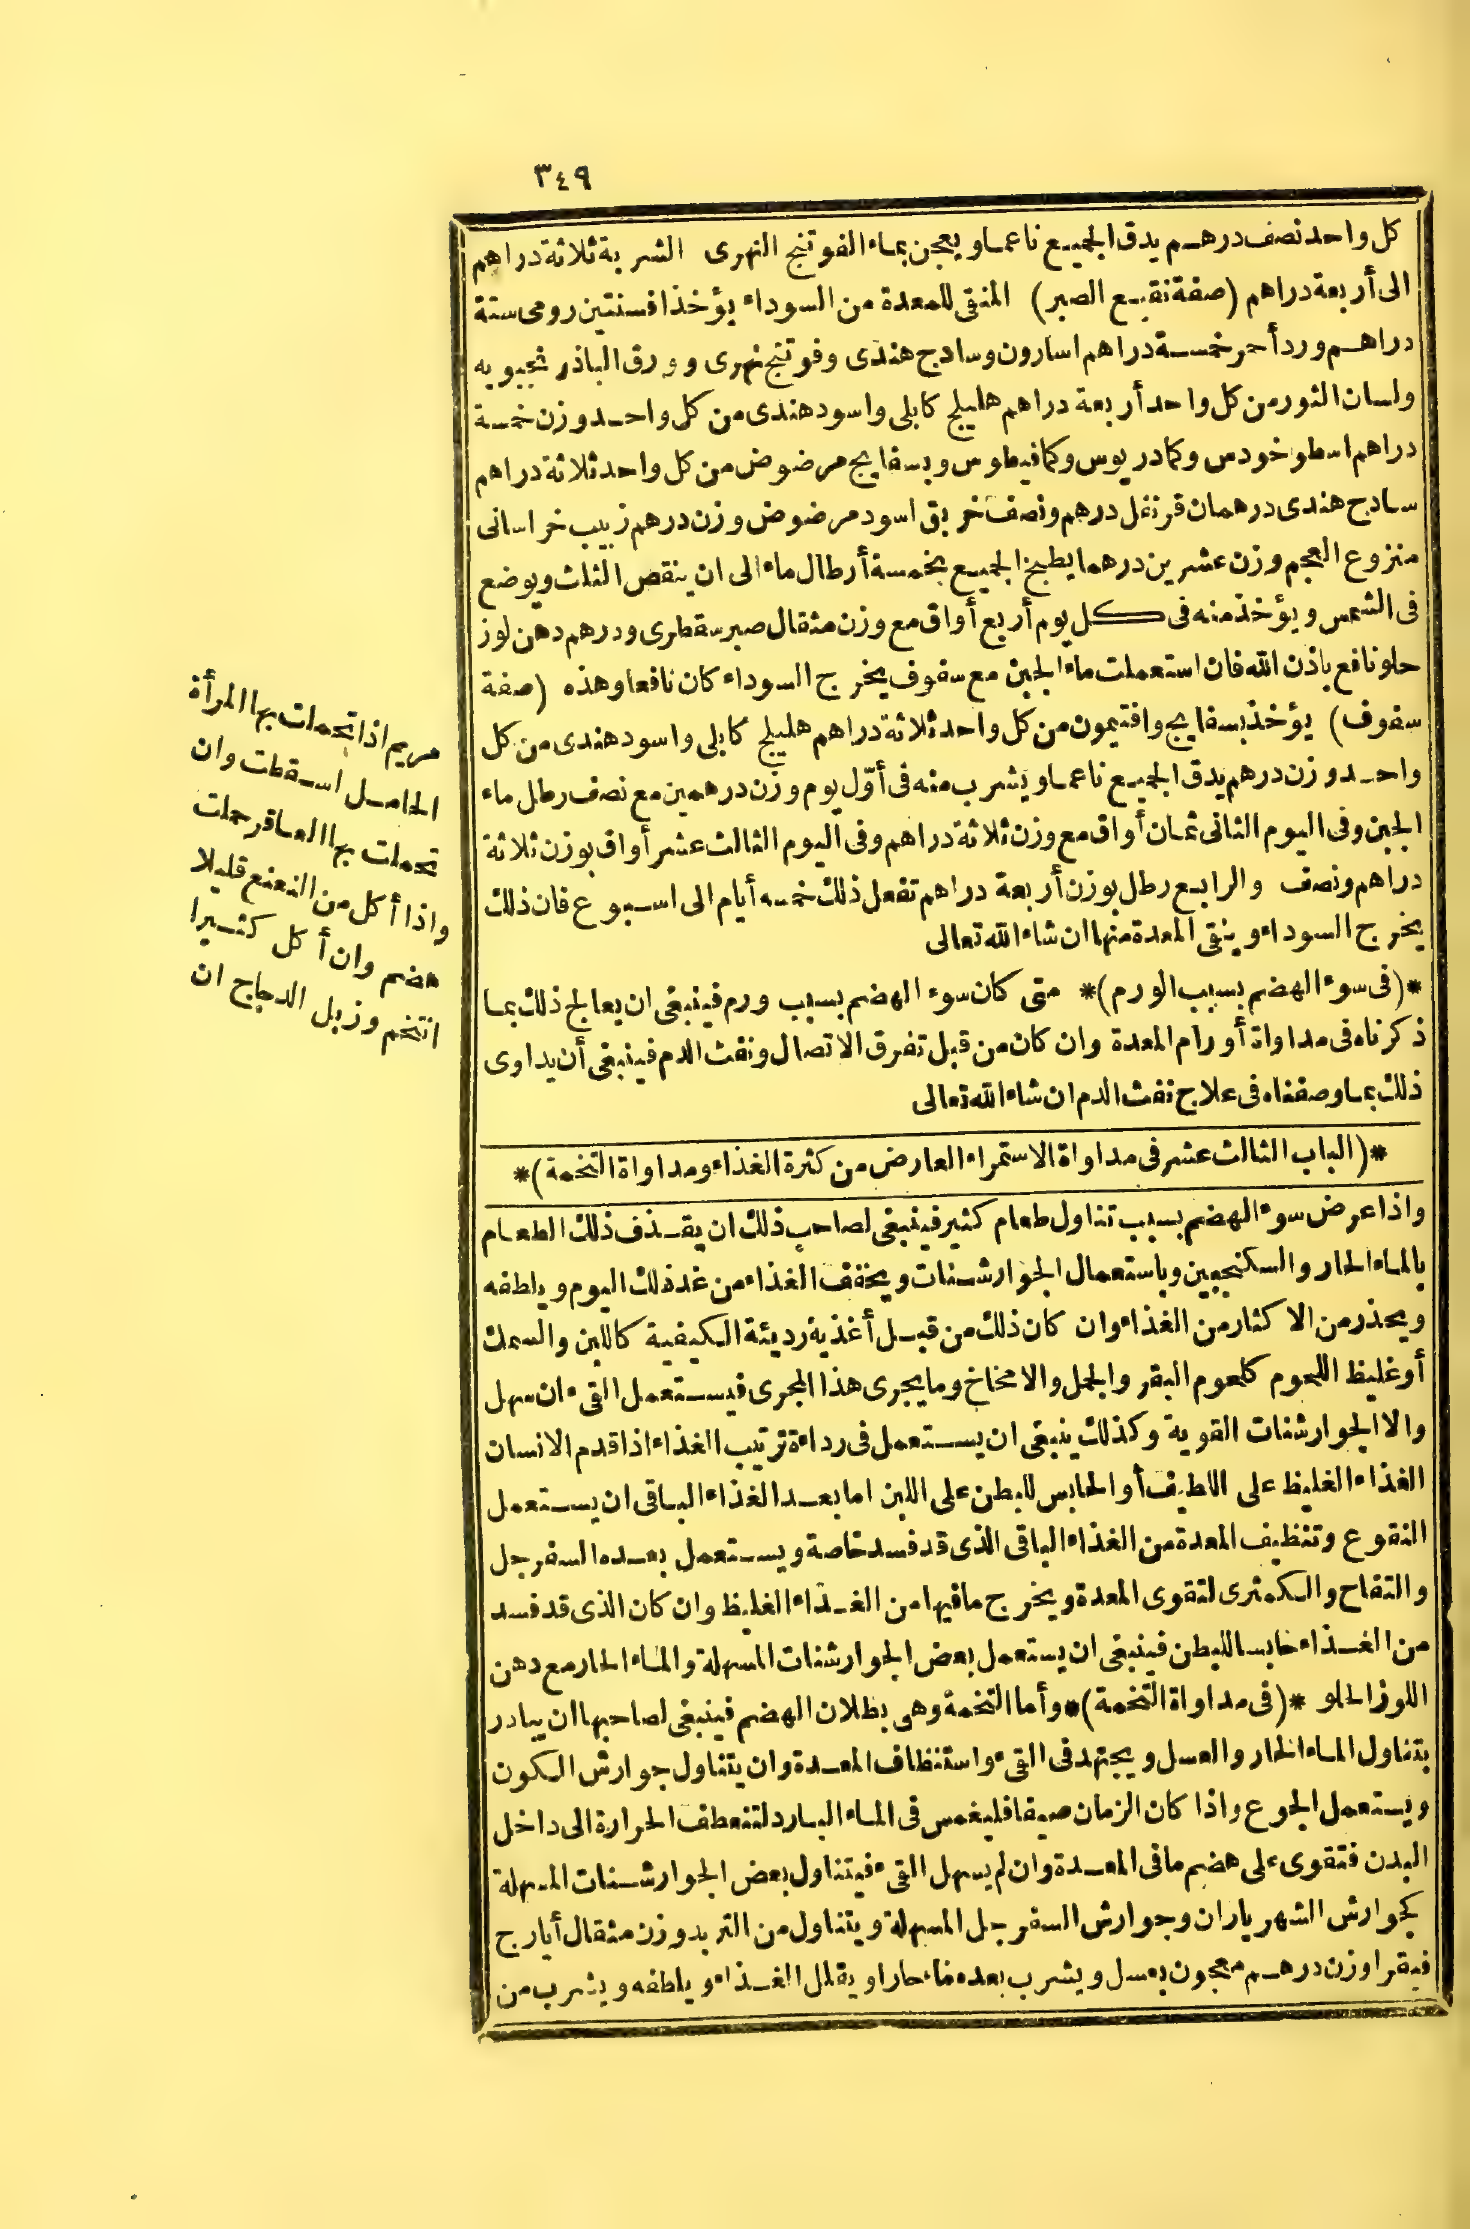 ٣٤٩
كل واحد نصف درهم يدق الجميع ناعما ويعجن بماء الفوتنج النهرى الشربة ثلاثة دراهم
الى أربعة دراهم (صفة نقيع الصبر) المنقى للمعدة من السوداء يؤخذ افسنتين رومى ستة
دراهم ورد أحمر خمسة دراهم اسارون وسادج هندى وفوتنج نهرى وورق الباذرنجبويه
ولسان الثور من كل واحد أربعة دراهم هليلج كابلى واسود هندى من كل واحد وزن خمسة
دراهم اسطوخودس وكادريوس وكافيطوس وبسفايج مرضوض من كل واحد ثلاثة دراهم
سادج هندى درهمان قرنفل درهم ونصف خربق اسود مرضوض وزن درهم زبيب خراسانى
منزوع العجم وزن عشرين درهما يطبخ الجميع بخمسة أرطال ماء الى ان ينقص الثلث ويوضع
فى الشمس ويؤخذ منه فى كل يوم أربع أواق مع وزن مثقال صبر سقطرى ودرهم دهن لوز
حلو نافع باذن الله فان استعملت ماء الجبن مع سفوف يخرج السوداء كان نافعا وهذه (صفة
سفوف) يؤخذ بسفايج وافتيمون من كل واحد ثلاثة دراهم هليلج كابلى واسود هندى من كل
واحد وزن درهم يدق الجميع ناعما ويشرب منه فى أوّل يوم وزن درهمين مع نصف رطل ماء
الجبن وفى اليوم الثانى ثمان أواق مع وزن ثلاثة دراهم وفى اليوم الثالث عشر أواق بوزن ثلاثة
دراهم ونصف والرابع رطل بوزن أربعة دراهم تفعل ذلك خمسه أيام الى اسبوع فان ذلك
يخرج السوداء وينقى المعدة منها ان شاء الله تعالى
*(فى سوء الهضم بسبب الورم)* متى كان سوء الهضم بسبب ورم فينبغى ان يعالج ذلك بما
ذكرناه فى مداواة أورام المعدة وان كان من قبل تفرق الاتصال ونفث الدم فينبغى أن يداوى
ذلك بما وصفناه فى علاج نفث الدم ان شاء الله تعالى
*(الباب الثالث عشر فى مداواة الاستمراء العارض من كثرة الغذاء ومداواة التخمة)*
واذا عرض سوء الهضم بسبب تناول طعام كثير فينبغى لصاحب ذلك ان يقذف ذلك الطعام
بالماء الحار والسكنجبين وباستعمال الجوارشنات ويخفف الغذاء من غد ذلك اليوم ويلطفه
ويحذر من الاكثار من الغذاء وان كان ذلك من قبل أغذية رديئة الكيفية كاللبن والسمك
أو غليظ اللحوم كلحوم البقر والجمل والامخاخ وما يجرى هذا المجرى فيستعمل القىء ان سهل
والا الجوارشنات القوية وكذلك ينبغى ان يستعمل فى رداءة ترتيب الغذاء اذا قدم الانسان
الغذاء الغليظ على اللطيف أو الحابس للبطن على اللين اما بعد الغذاء الباقى ان يستعمل
النقوع وتنظيف المعدة من الغذاء الباقى الذى قد فسد خاصة ويستعمل بعده السفرجل
والتفاح والكمثرى لتقوى المعدة ويخرج ما فيها من الغذاء الغليظ وان كان الذى قد فسد
من الغذاء حابسا للبطن فينبغى ان يستعمل بعض الجوارشنات المسهلة والماء الحار مع دهن
اللوز الحلو *(فى مداواة التخمة)* وأما التخمة وهى بطلان الهضم فينبغى لصاحبها ان يبادر
بتناول الماء الحار والعسل ويجتهد فى القىء واستنظاف المعدة وان يتناول جوارش الكون
ويستعمل الجوع واذا كان الزمان صيفا فليغمس فى الماء البارد لتنعطف الحرارة الى داخل
البدن فتقوى على هضم ما فى المعدة وان لم يسهل القىء فيتناول بعض الجوارشنات المسهلة
كجوارش الشهرياران وجوارش السفرجل المسهلة ويتناول من التربد وزن مثقال أيارج
فيقرا وزن درهم معجون بعسل ويشرب بعده ماء حارا ويقلل الغذاء ويلطفه ويشرب من
مريم اذا تحملت بها المرأة
الحامل اسقطت وان
تحملت بها العاقر حملت
واذا أكل من النعنع قليلا
هضم وان أكل كثيرا
اتخم وزبل الدجاج ان